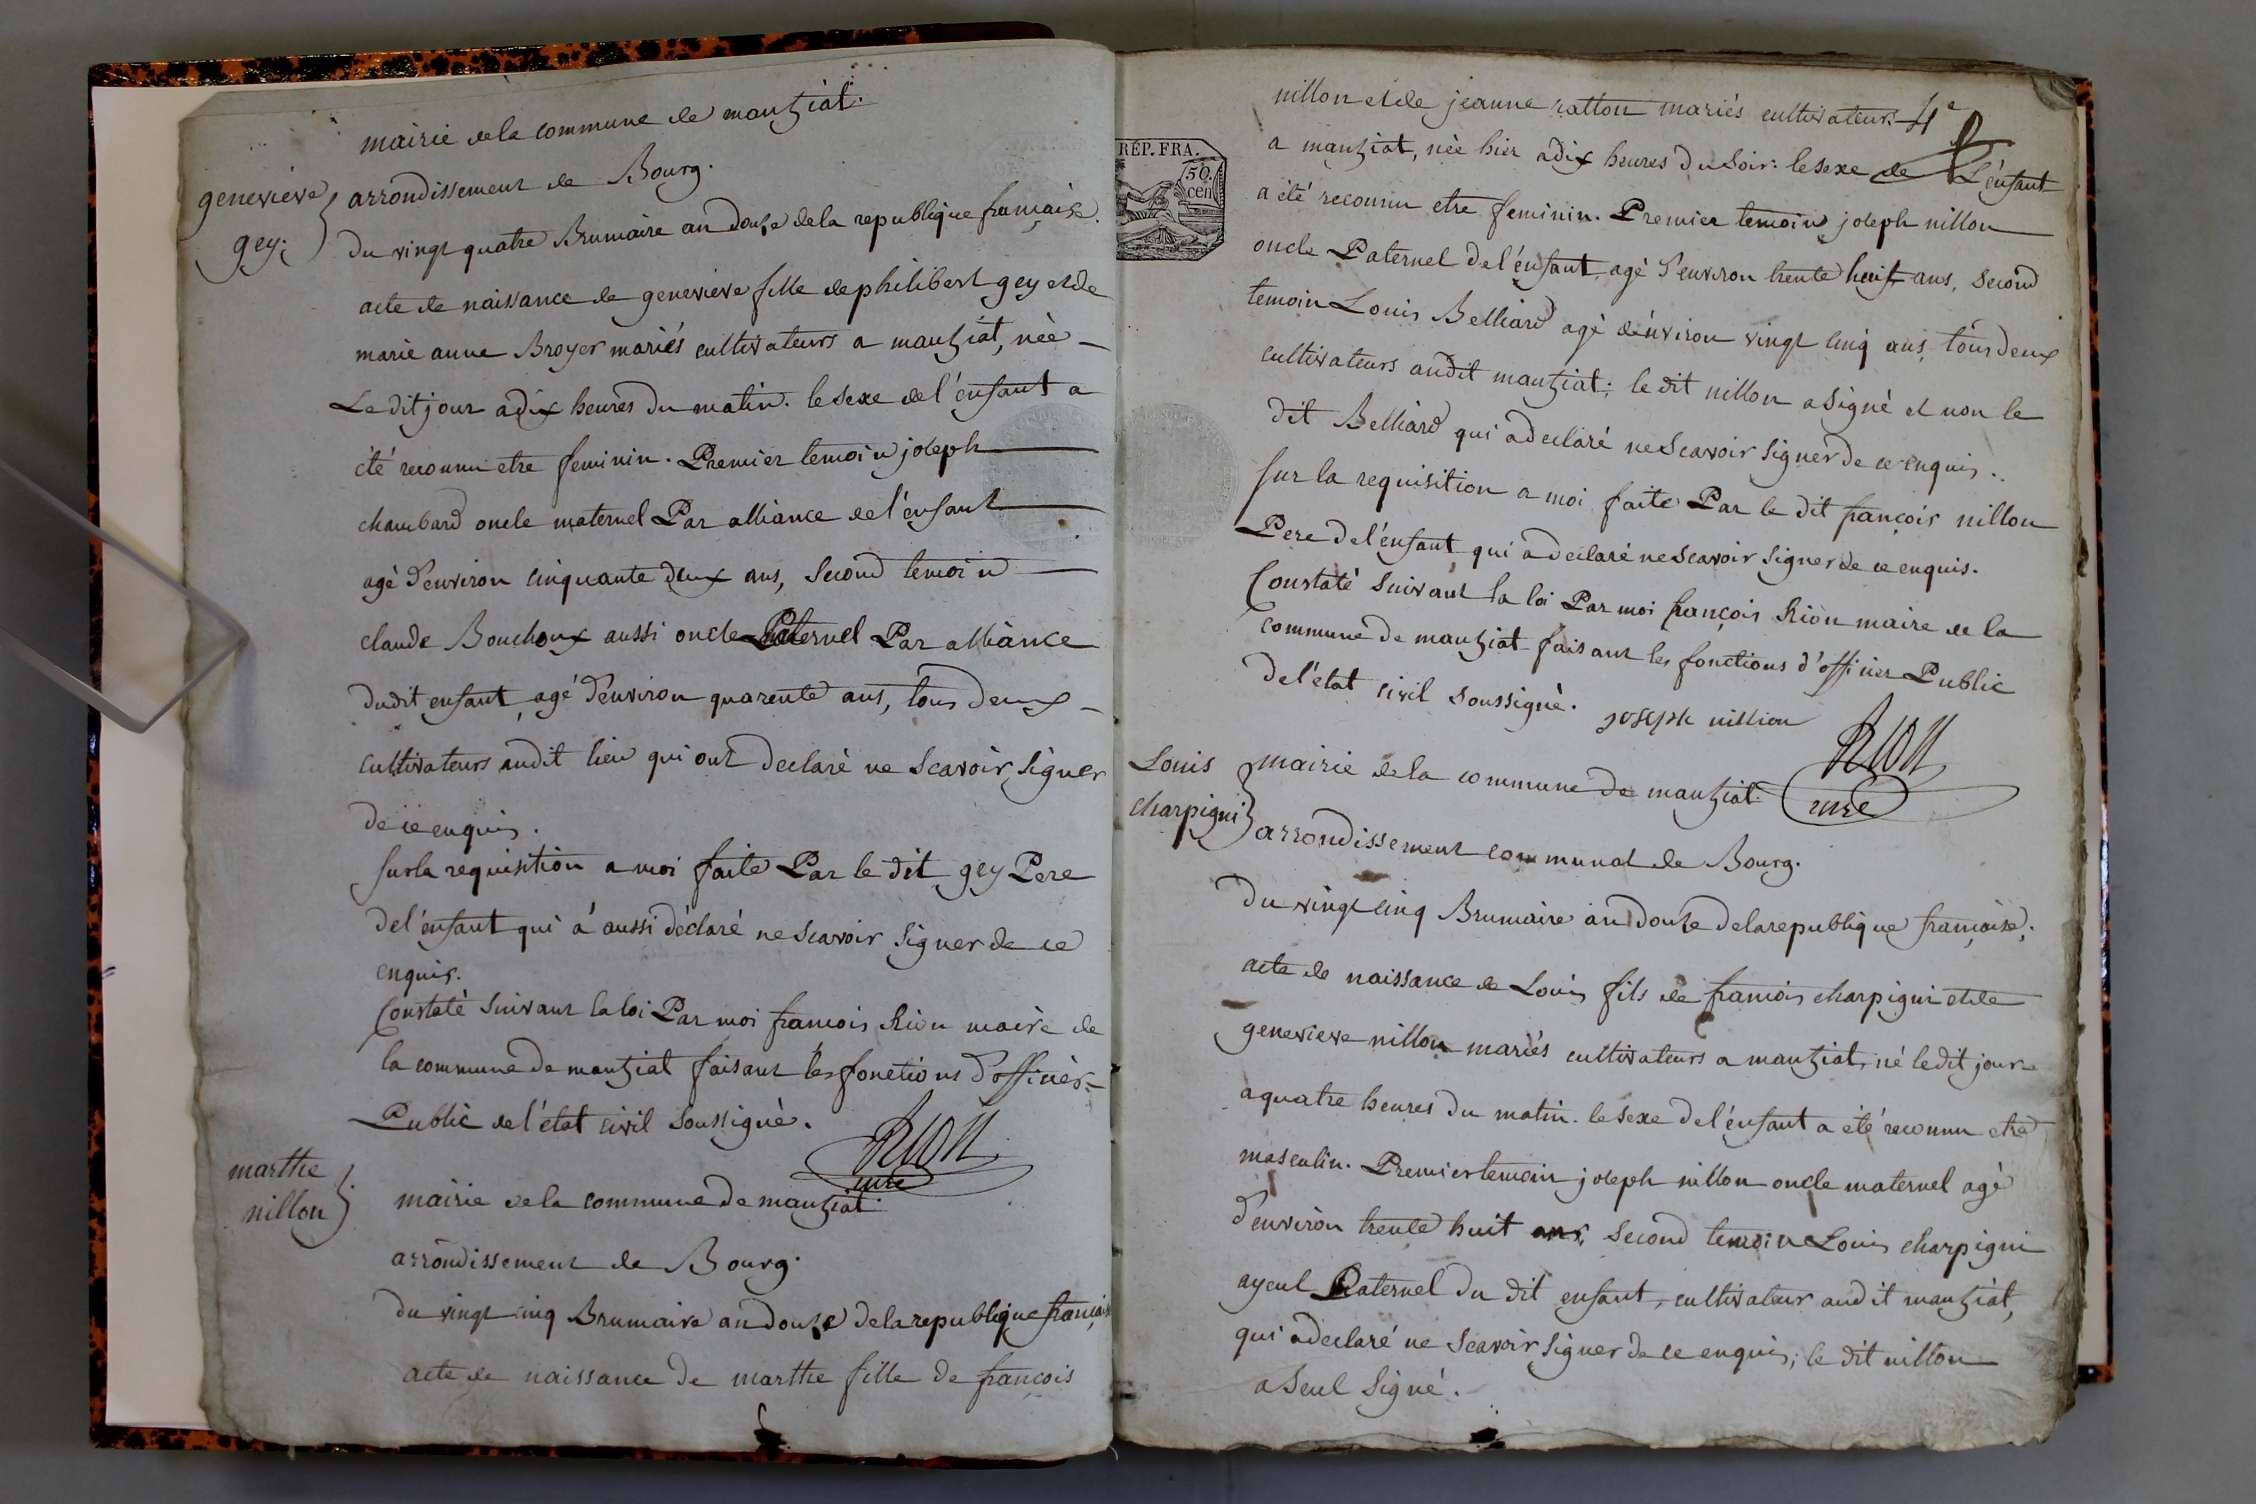 mairie de la commune de mantziat.
genevieve
gey.
arrondissement de Bourg.
du vingt quatre Brumaire an douze de la republique française.
acte de naissance de genevieve fille de philibert gey et de
marie anne Broyer mariés cultivateurs a mantziat, née
Le dit jour a dix heures du matin. le sexe de l'enfant a
été reconnu etre feminin. Premier temoin joseph
chambard oncle maternel Par alliance de l'enfant
agé d'environ cinquante deux ans, second temoin
claude Bouchoux aussi oncle Paternel Par alliance
dudit enfant, agé d'environ quarente ans, tous deux
cultivateurs audit lieu qui ont declaré ne scavoir signer
de ce enquis.
sur la requisition a moi faite Par le dit gey Pere
de l'enfant qui a aussi déclaré ne scavoir signer de ce
enquis.
Constaté suivant la loi Par moi francois Rion maire de
la commune de mantziat faisant les fonctions d'officier
Public de l'état civil soussigné.
Rion
mre
marthe
nillon
mairie de la commune de mantziat.
arrondissement de Bourg.
du vingt cinq Brumaire an douze de la republique français
acte de naissance de marthe fille de françois
4e
nillon et de jeanne ratton mariés cultivateurs
RÉP. FRA.
50.
cen
a mantziat, née hier a dix heures du soir. le sexe de L'enfant
a été reconnu etre feminin. Premier temoin joseph nillon
oncle Paternel de l'enfant, agé d'environ trente huit ans, second
temoin Louis Belliard agé d'environ vingt cinq ans, tous deux
cultivateurs audit mantziat; le dit nillon a signé et non le
dit Belliard qui a declaré ne scavoir signer de ce enquis.
sur la requisition a moi faite Par le dit françois nillon
Pere de l'enfant qui a declaré ne scavoir signer de ce enquis.
Constaté suivant la loi Par moi françois Rion maire de la
commune de mantziat faisant les fonctions d'officier Public
de l'état civil soussigné. joseph nillion
Rion
mre
Louis
charpigni
mairie de la commune de mantziat
arrondissement communal de Bourg.
du vingt cinq Brumaire an douze de la republique française.
acte de naissance de Louis fils de francois charpigni et de
genevieve nillon mariés cultivateurs a mantziat, né le dit jour
a quatre heures du matin. le sexe de l'enfant a été reconnu etre
masculin. Premier temoin joseph nillon oncle maternel agé
d'environ trente huit ans, second temoin Louis charpigni
ayeul Paternel du dit enfant, cultivateur audit mantziat,
qui a declaré ne scavoir signer de ce enquis; le dit nillon
a seul signé.